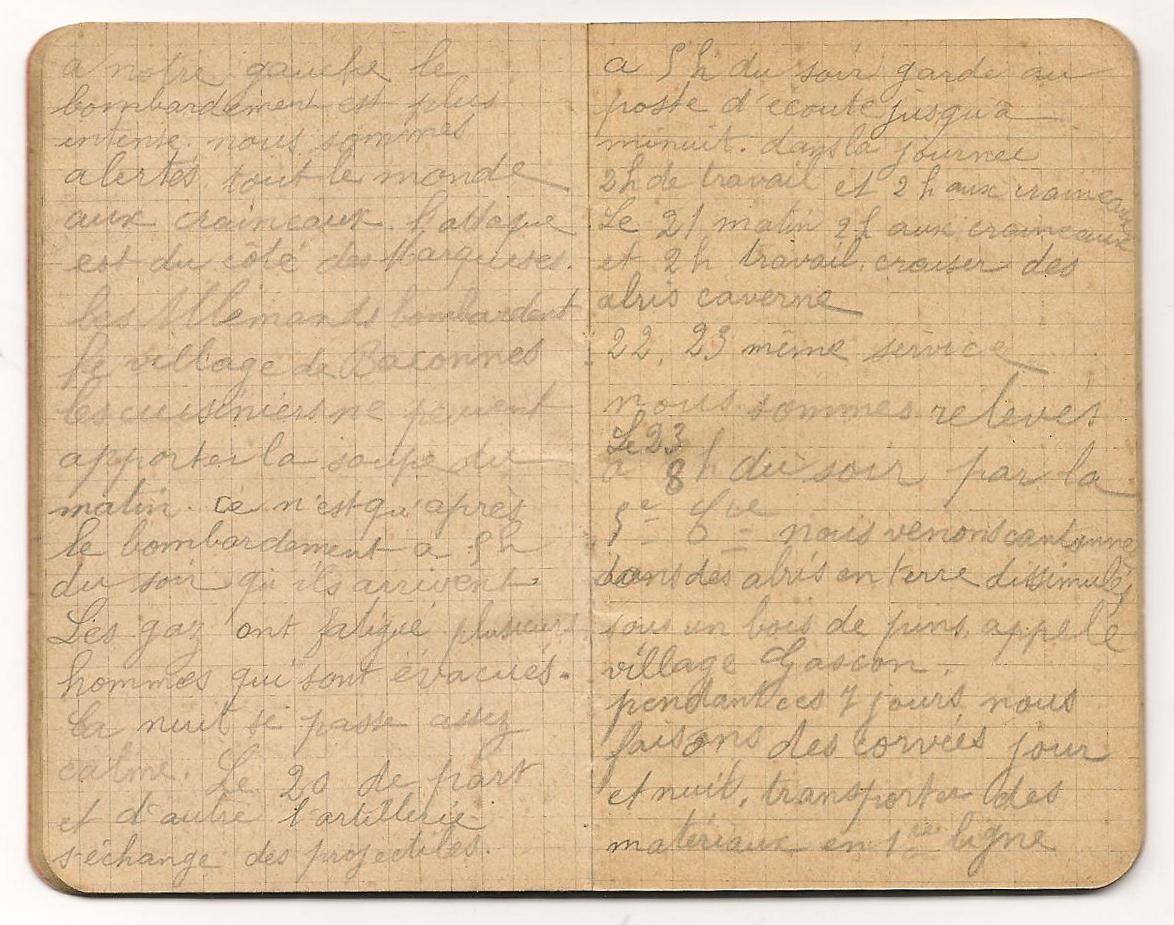 a notre gauche le
bombardement est plus
intense. nous sommes
alertés. tout le monde
aux craineaux. l'attaque
est du côté des Marquises.
les Allemands bombardent
le village de Baconnes
les cuisiniers ne peuvent
apporter la soupe du
matin. ce n'est qu'après
le bombardement a 5h
du soir qu'ils arrivent.
Les gaz ont fatigué plusieurs
hommes qui sont évacués.
La nuit se passe assez
calme. Le 20 de part
et d'autre l'artillerie
s'échange des projectiles.
a 5 h du soir garde au
poste d'écoute jusqu'à
minuit. dans la journée
2h de travail et 2 h aux craineaux
Le 21 matin 2h aux craineaux
et 2 h travail. craiser des
abris caverne
22. 23 même service
nous sommes relevés
Le 23
a 8 h du soir par la
5e Cie nous venons cantonner
dans des abris en terre dissimulés
sous un bois de pins, appelé
village Gascon.
pendant ces 7 jours nous
faisons des corvées jour
et nuit, transporter des
matériaux en 1re ligne